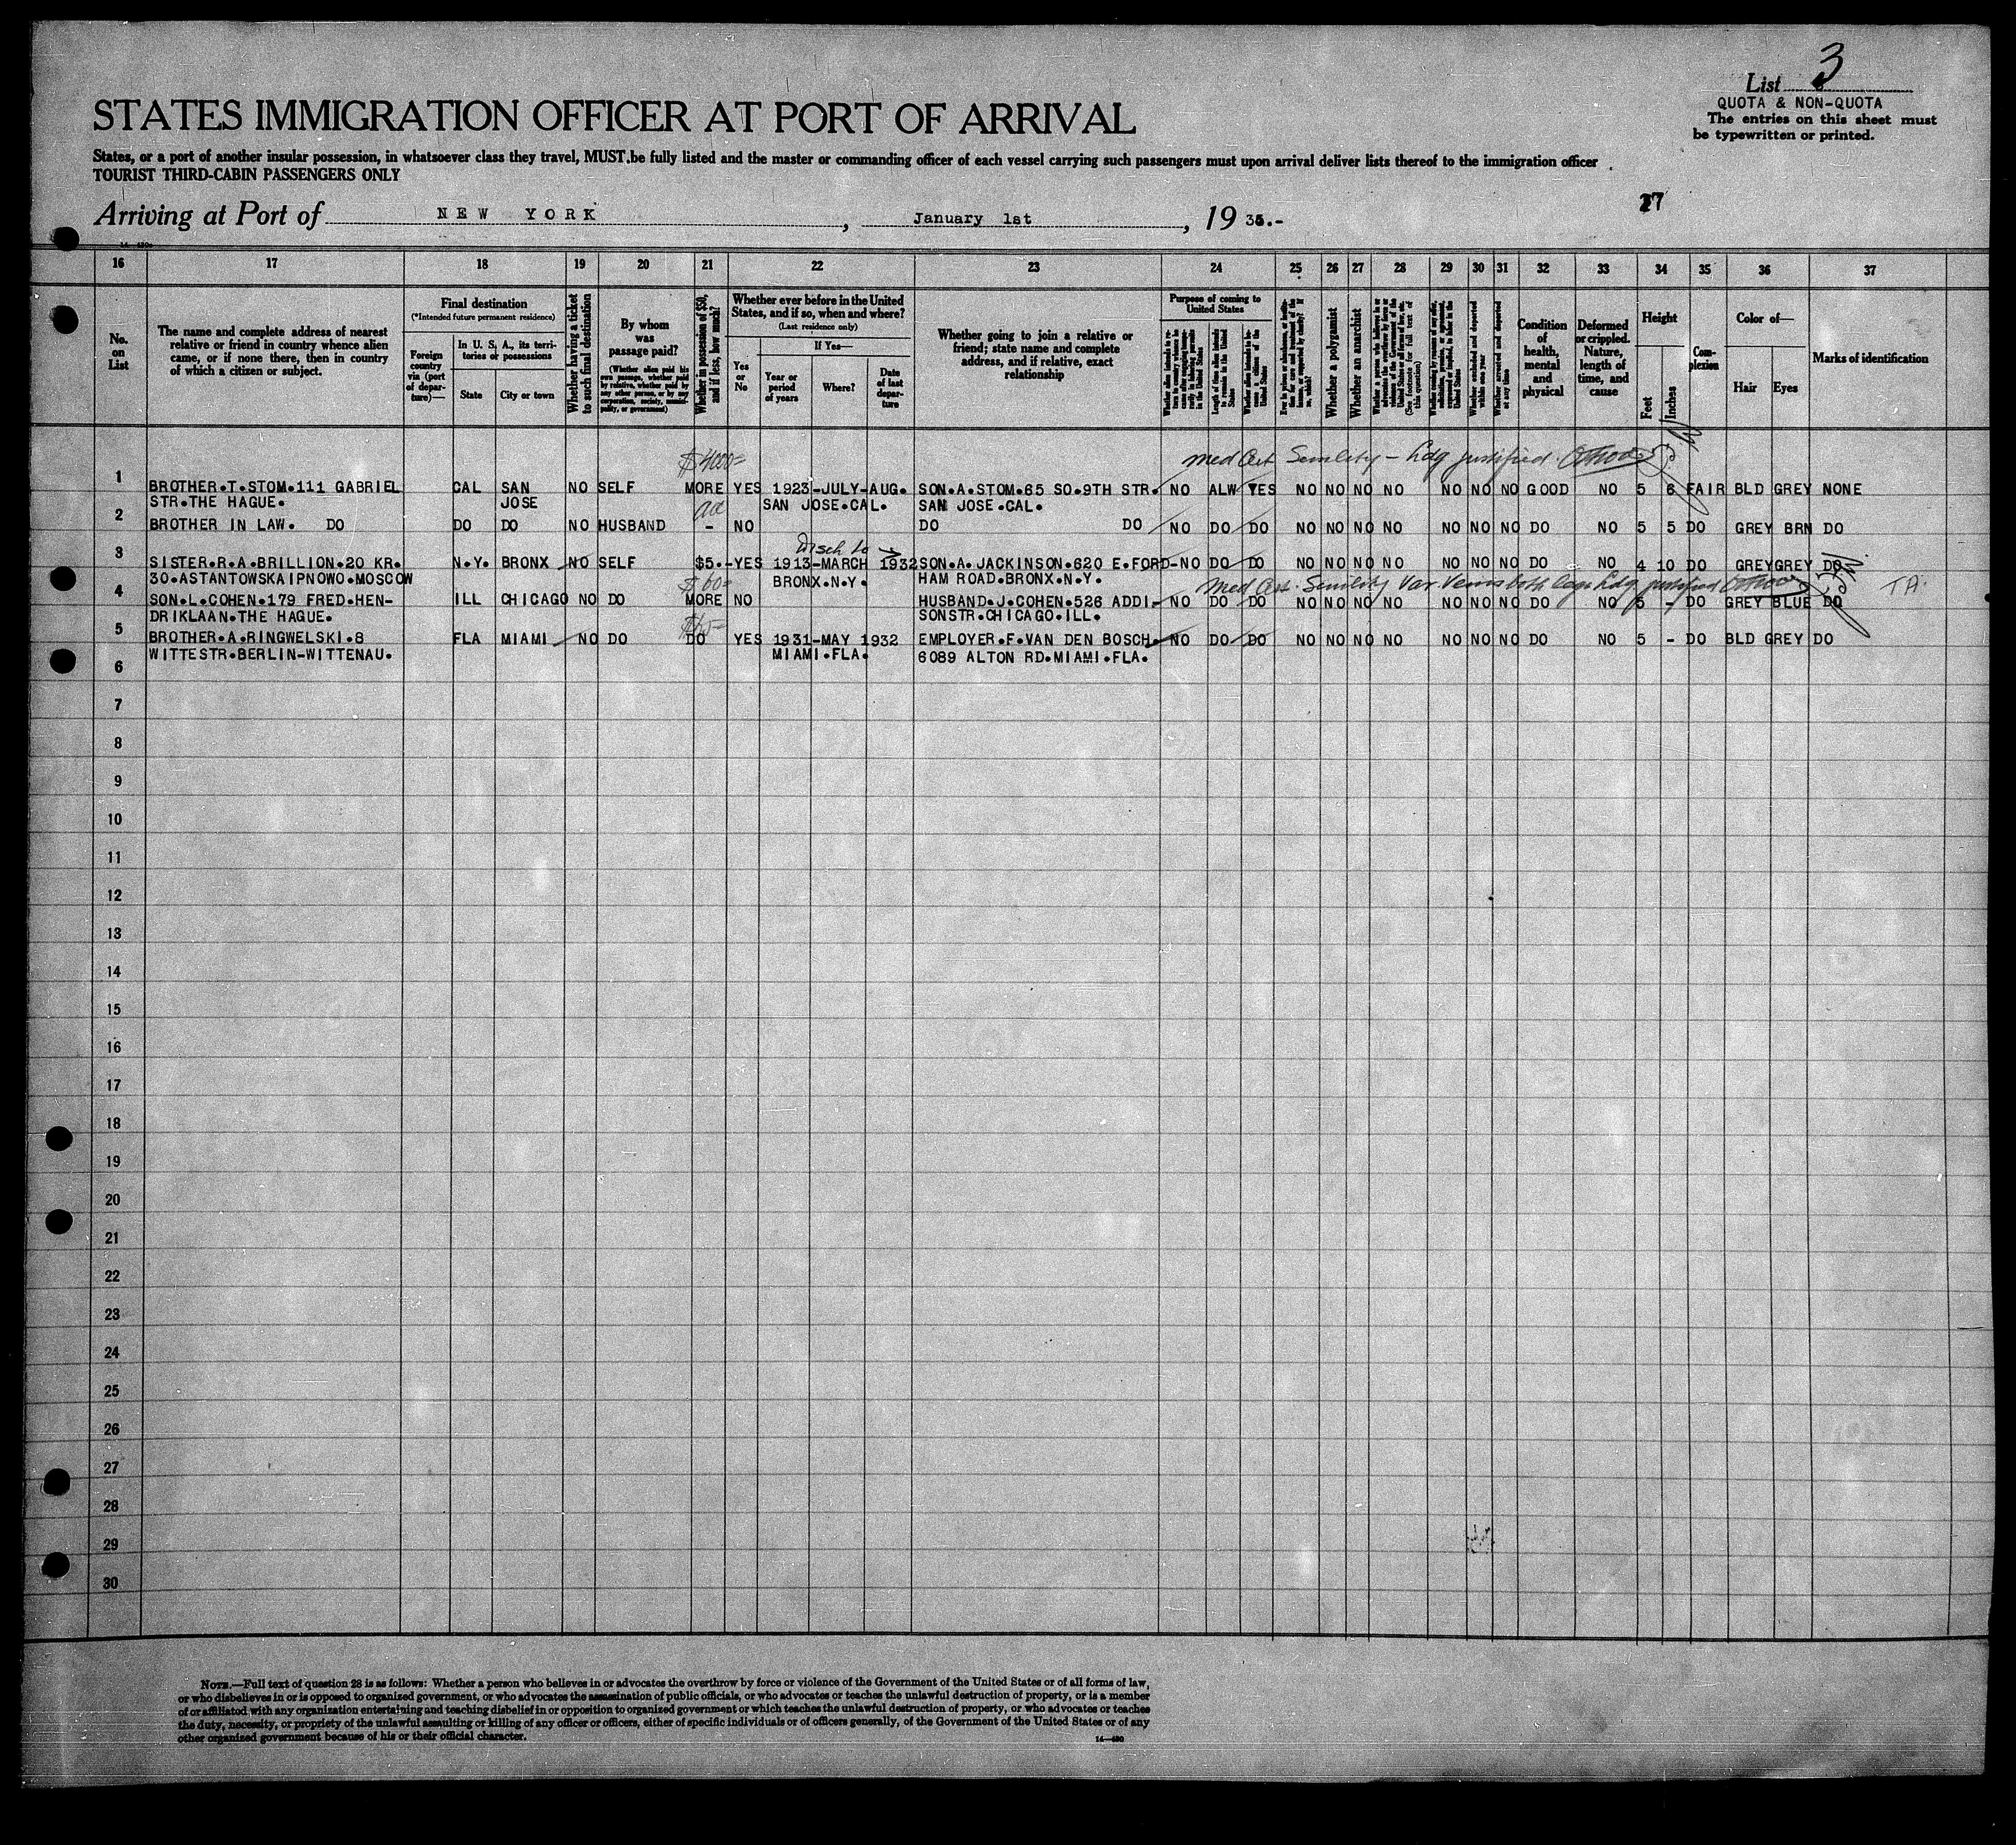 List 3
QUOTA & NON-QUOTA
The entries on this sheet must
be typewritten or printed.
STATES IMMIGRATION OFFICER AT PORT OF ARRIVAL
States, or a port of another insular possession, in whatsoever class they travel, MUST be fully listed and the master or commanding officer of each vessel carrying such passengers must upon arrival deliver lists thereof to the immigration officer
TOURIST THIRD-CABIN PASSENGERS ONLY
Arriving at Port of NEW YORK, January 1st, 19
16 17 18 19 20 21 22 23 24 25 26 27 28 29 30 31 32 33 34 35 36 37
No. on List
The name and complete address of nearest relative or friend in country whence alien came, or if none there, then in country of which a citizen or subject.
Final destination
(*Intended future permanent residence)
Foreign country via (port of departure)—
In U. S. A., its territories or possessions
State
City or town
Whether having a ticket to such final destination
By whom was passage paid?
(Whether alien paid his own passage, whether paid by relative, whether paid by any other person, or by any corporation, society, municipality, or government)
Whether in possession of $50, and if less, how much?
Whether ever before in the United States, and if so, when and where?
(Last residence only)
Yes or No
If Yes—
Year or period of years
Where?
Date of last departure
Whether going to join a relative or friend; state name and complete address, and if relative, exact relationship
Purpose of coming to United States
Length of time alien intends to remain in the United States
Whether a polygamist
Whether an anarchist
(See footnote for full text of this question)
Whether arrested and deported at any time
Condition of health, mental and physical
Deformed or crippled. Nature, length of time, and cause
Height
Feet
Inches
Complexion
Color of—
Hair
Eyes
Marks of identification
$4000=
med Cert Senility - Ldg justified
1 BROTHER.T.STOM.111 GABRIEL CAL SAN NO SELF MORE YES 1923-JULY-AUG. SON.A.STOM.65 SO.9TH STR. NO ALW YES NO NO NO NO NO NO NO GOOD NO 5 6 FAIR BLD GREY NONE
STR.THE HAGUE. JOSE SAN JOSE.CAL. SAN JOSE.CAL.
2 BROTHER IN LAW. DO DO DO NO HUSBAND - NO DO DO NO DO DO NO NO NO NO NO NO NO DO NO 5 5 DO GREY BRN DO
3 SISTER.R.A.BRILLION.20 KR. N.Y. BRONX NO SELF $5.- YES 1913-MARCH 1932 SON.A.JACKINSON.620 E.FORD- NO DO DO NO NO NO NO NO NO NO DO NO 4 10 DO GREY GREY DO
30.ASTANTOWSKAIPNOWO.MOSCOW BRONX.N.Y. HAM ROAD.BRONX.N.Y.
med Cert. Senility Var. Veins both legs Ldg justified
4 SON.L.COHEN.179 FRED.HEN- ILL CHICAGO NO DO MORE NO HUSBAND.J.COHEN.526 ADDI- NO DO DO NO NO NO NO NO NO NO DO NO 5 - DO GREY BLUE DO
DRIKLAAN.THE HAGUE. SONSTR.CHICAGO.ILL.
5 BROTHER.A.RINGWELSKI.8 FLA MIAMI NO DO DO YES 1931-MAY 1932 EMPLOYER.F.VAN DEN BOSCH. NO DO DO NO NO NO NO NO NO NO DO NO 5 - DO BLD GREY DO
WITTESTR.BERLIN-WITTENAU. MIAMI.FLA. 6089 ALTON RD.MIAMI.FLA.
6
7
8
9
10
11
12
13
14
15
16
17
18
19
20
21
22
23
24
25
26
27
28
29
30
NOTE.—Full text of question 28 is as follows: Whether a person who believes in or advocates the overthrow by force or violence of the Government of the United States or of all forms of law,
or who disbelieves in or is opposed to organized government, or who advocates the assassination of public officials, or who advocates or teaches the unlawful destruction of property, or is a member
of or affiliated with any organization entertaining and teaching disbelief in or opposition to organized government or which teaches the unlawful destruction of property, or who advocates or teaches
the duty, necessity, or propriety of the unlawful assaulting or killing of any officer or officers, either of specific individuals or of officers generally, of the Government of the United States or of any
other organized government because of his or their official character.